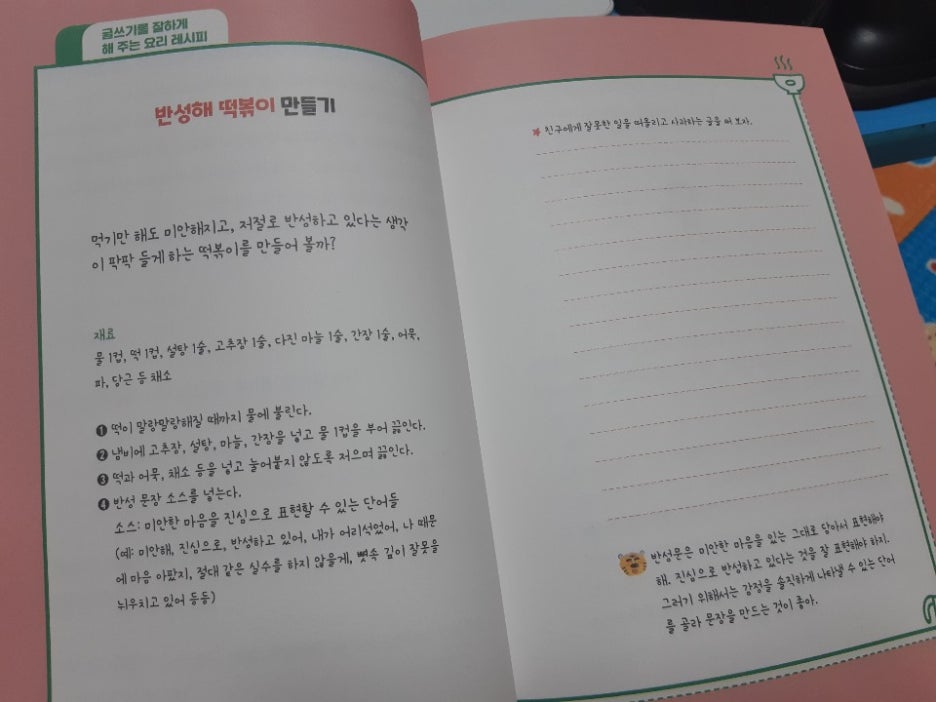 글쓰기를 잘하게
해 주는 요리 레시피
반성해 떡볶이 만들기
먹기만 해도 미안해지고, 저절로 반성하고 있다는 생각
이 팍팍 들게 하는 떡볶이를 만들어 볼까?
재료
물 1컵, 떡 1컵, 설탕 1술, 고추장 1술, 다진 마늘 1술, 간장 1술, 어묵,
파, 당근 등 채소
❶ 떡이 말랑말랑해질 때까지 물에 불린다.
❷ 냄비에 고추장, 설탕, 마늘, 간장을 넣고 물 1컵을 부어 끓인다.
❸ 떡과 어묵, 채소 등을 넣고 눌어붙지 않도록 저으며 끓인다.
❹ 반성 문장 소스를 넣는다.
소스: 미안한 마음을 진심으로 표현할 수 있는 단어들
(예: 미안해, 진심으로, 반성하고 있어, 내가 어리석었어, 나 때문
에 마음 아팠지, 절대 같은 실수를 하지 않을게, 뼛속 깊이 잘못을
뉘우치고 있어 등등)
★ 친구에게 잘못한 일을 떠올리고 사과하는 글을 써 보자.
반성문은 미안한 마음을 있는 그대로 담아서 표현해야
해. 진심으로 반성하고 있다는 것을 잘 표현해야 하지.
그러기 위해서는 감정을 솔직하게 나타낼 수 있는 단어
를 골라 문장을 만드는 것이 좋아.